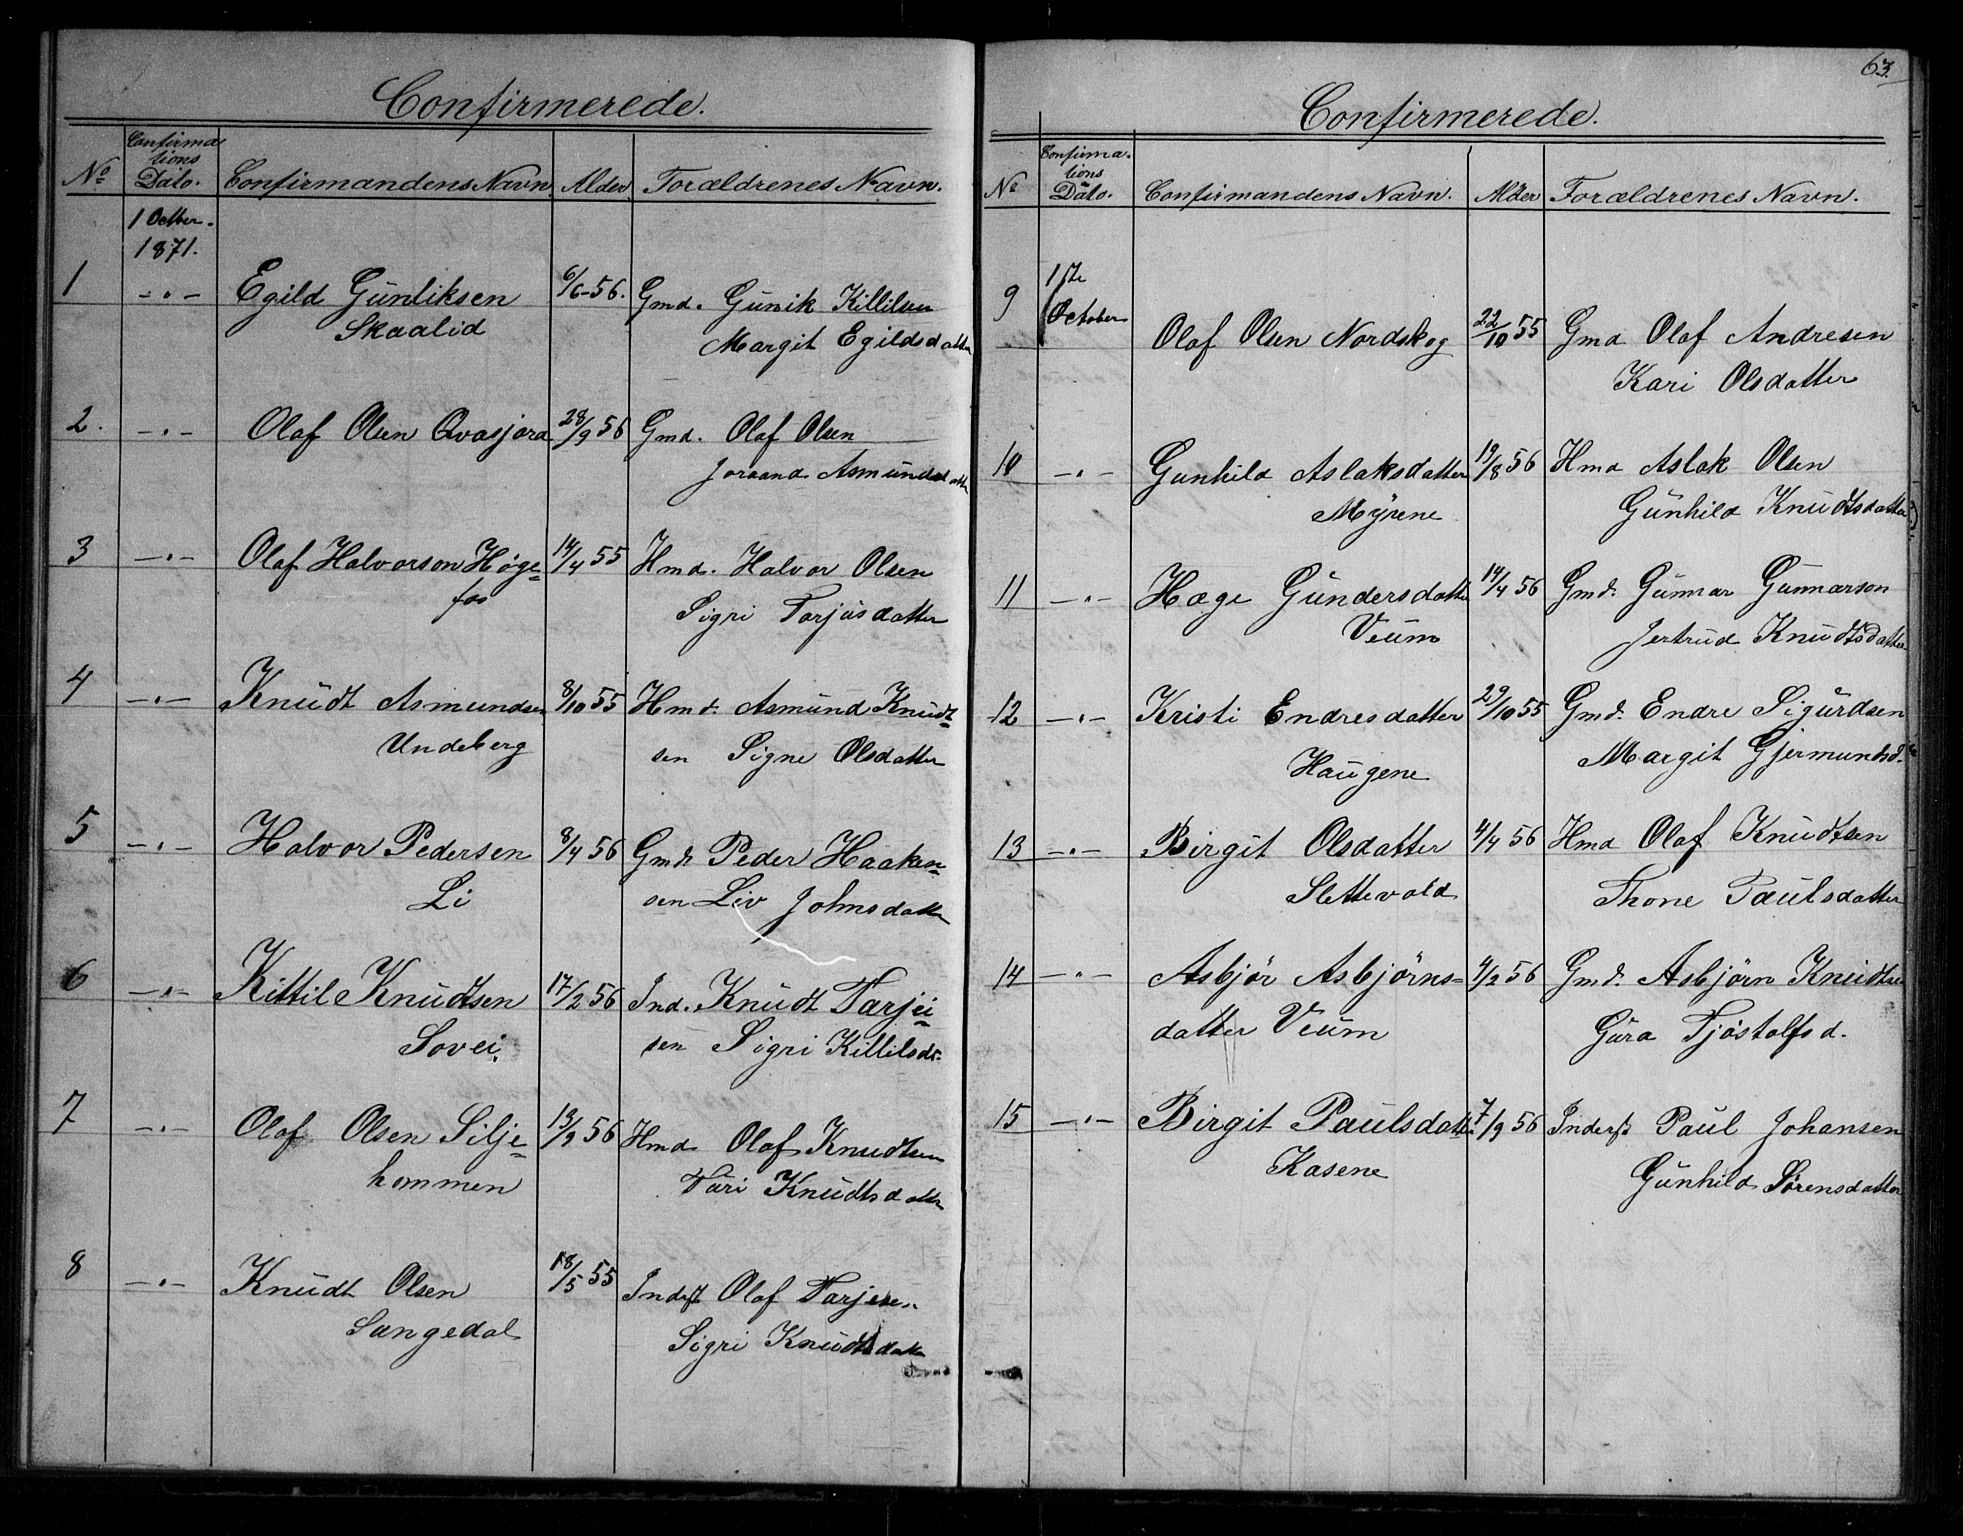 Confirmerede.
No Confirmations Dato. Confirmandens Navn Alder Forældrenes Navn.
1 October. 1871.
1 -„- Egild Gunliksen 6/6-56. Gmd. Gunik Killilsen
Skaalid Margit Egildsdatter
2. -„- Olaf Olsen Qvasjord 28/9 56 Gmd. Olaf Olsen
Joraand Asmundsdatter
3 -„- Olaf Halvorson Høge- 14/4 55 Hmd. Halvor Olsen
fos Sigri Tarjusdatter
4 -„- Knudt Asmundsen 8/10 55 Hmd. Asmund Knudt-
Undeberg sen Signe Olsdatter
5 -„- Halvor Pedersen 8/4 56 Gmd. Peder Haaken-
Li sen Liv Johnsdatter
6 -„- Kittil Knudtsen 17/2 56 Ind. Knudt Tarjei-
Sovei sen Sigri Killilsdr.
7 -„- Olaf Olsen Silje- 13/2 56 Hmd Olaf Knudtsen
hommen Turi Knudtsdatter
8 -„- Knudt Olsen 18/5 55 Inderst Olaf Tarjesen
Langedal Sigri Knudtsdatter
63.
Confirmerede.
No Confirmations Dato. Confirmandens Navn. Alder Forældrenes Navn.
9 1ste October Olaf Olsen Nordskog 22/10 55 Gmd Olaf Andresen
Kari Olsdatter
10 -„- Gunhild Aslaksdatter 19/8 56 Hmd Aslak Olsen
Myrene Gunhild Knudtsdatter
11 -„- Hæge Gundersdatter 14/4 56 Gmd. Gunnar Gunnarson
Veum Jertrud Knudtsdatter
12 -„- Kristi Endresdatter 29/10 55 Gmd. Endre Sigurdsen
Haugene Margit Gjermundsd.
13 -„- Birgit Olsdatter 4/4 56 Hmd Olaf Knudtsen
Slettevold Thone Paulsdatter
14 -„- Asbjør Asbjørns- 4/2 56 Gmd. Asbjørn Knudtsen
datter Veum Gura Tjøstolfsd.
15 -„- Birgit Paulsdatter 7/9 56 Inderst Paul Johansen
Kasene Gunhild Sørensdatter